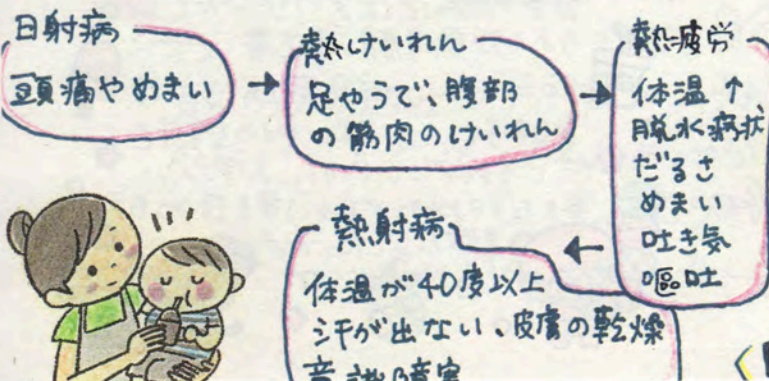 日射病
頭痛やめまい
熱けいれん
足やうで、腹部
の筋肉のけいれん
熱疲労
体温↑
脱水症状
だるさ
めまい
吐き気
嘔吐
熱射病
体温が40度以上
汗が出ない、皮膚の乾燥
意識障害